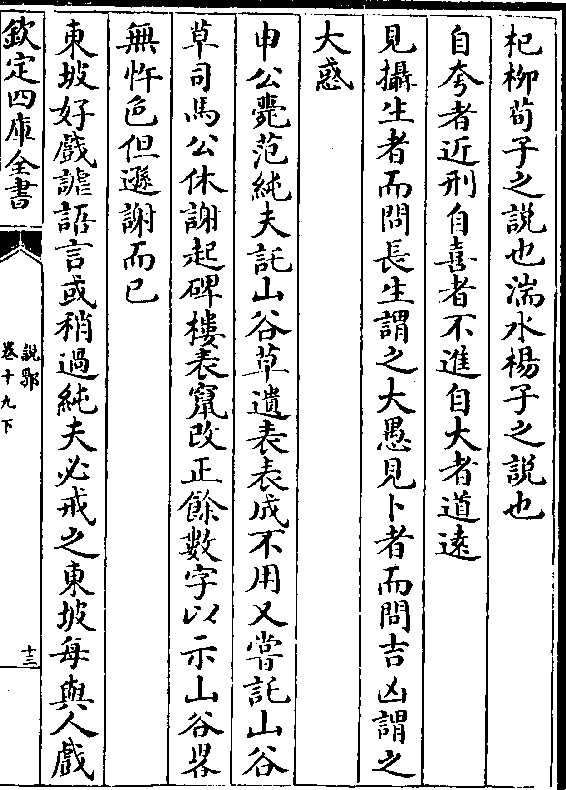 杞柳荀子之說也湍水楊子之說也
自夸者近刑自喜者不進自大者道遠
見攝生者而問長生謂之大愚見卜者而問吉凶謂之
大惑
申公薨范純夫託山谷草遺表表成不用又嘗託山谷
草司馬公休謝起碑樓表竄改正餘數字以示山谷畧
無忤色但遜謝而已
東坡好戲謔語言或稍過純夫必戒之東坡每與人戲
欽定四庫全書
說郛
卷十九下
十三